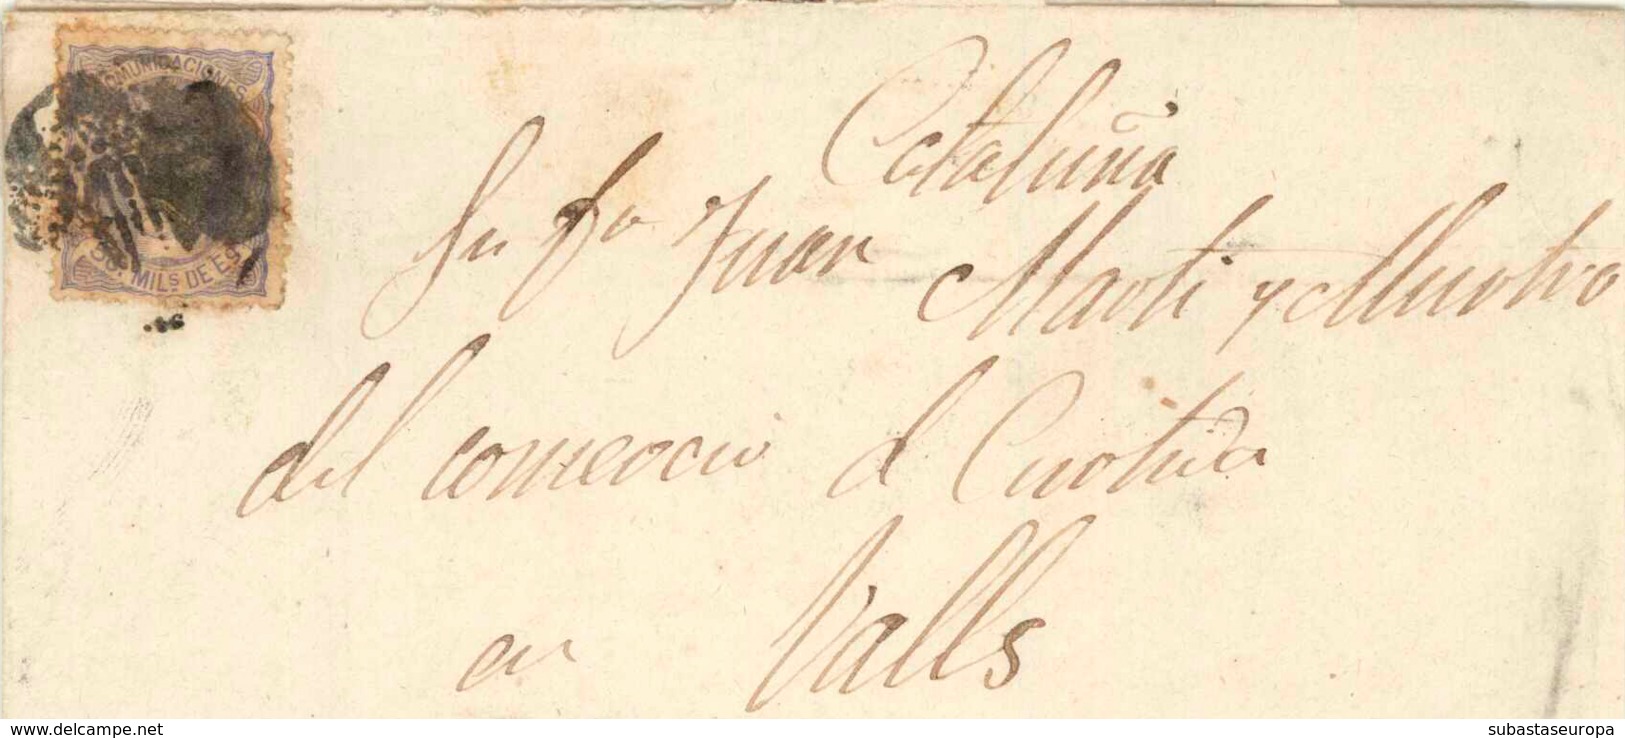 COMUNICACIONES
50. MILS DE ES
Cataluña
Sr Dn Juan Marti y
del comercio d Curtidos
en Valls
www.delcampe.net
subastaseuropa